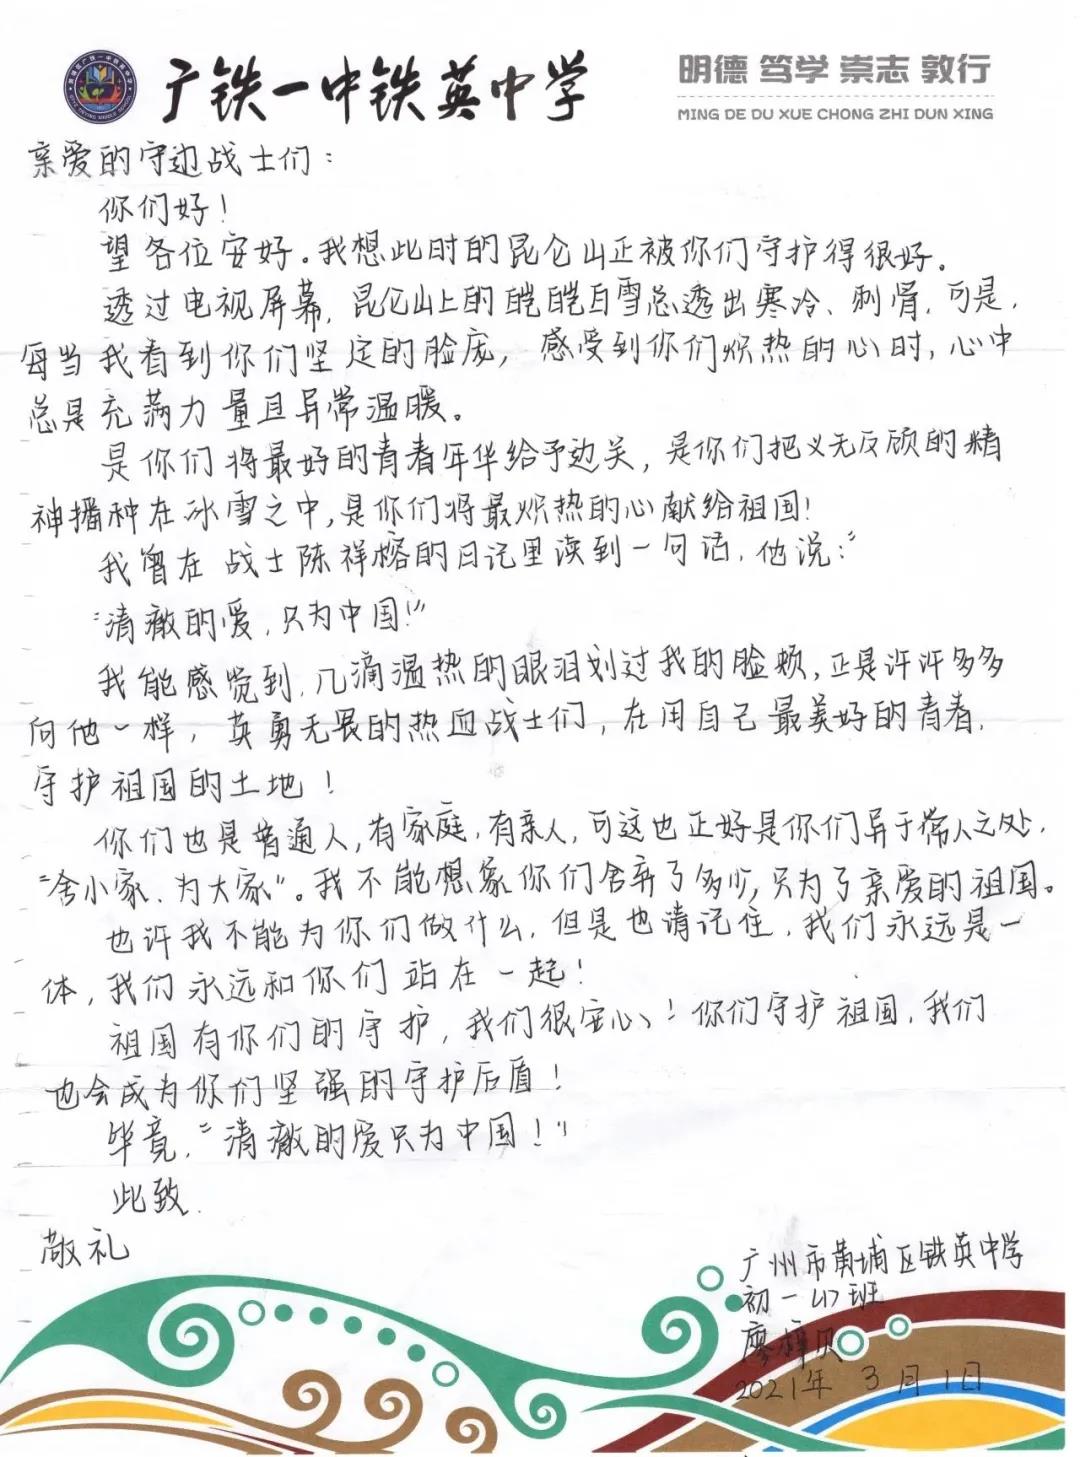 广铁一中铁英中学
明德 笃学 崇志 敦行
MING DE DU XUE CHONG ZHI DUN XING
亲爱的守边战士们：
你们好！
望各位安好。我想此时的昆仑山正被你们守护得很好。
透过电视屏幕，昆仑山上的皑皑白雪总透出寒冷、刺骨，可是，
每当我看到你们坚定的脸庞，感受到你们炽热的心时，心中
总是充满力量且异常温暖。
是你们将最好的青春年华给予边关，是你们把义无反顾的精
神播种在冰雪之中，是你们将最炽热的心献给祖国！
我曾在战士陈祥榕的日记里读到一句话，他说：“
“清澈的爱，只为中国！”
我能感觉到，几滴温热的眼泪划过我的脸颊，正是许许多多
向他一样，英勇无畏的热血战士们，在用自己最美好的青春，
守护祖国的土地！
你们也是普通人，有家庭，有亲人，可这也正好是你们异于常人之处，
“舍小家、为大家”。我不能想象你们舍弃了多少，只为了亲爱的祖国。
也许我不能为你们做什么，但是也请记住，我们永远是一
体，我们永远和你们站在一起！
祖国有你们的守护，我们很安心！你们守护祖国，我们
也会成为你们坚强的守护后盾！
毕竟，“清澈的爱只为中国！”
此致
敬礼
广州市黄埔区铁英中学
初一47班
廖梓贝
2021年3月1日